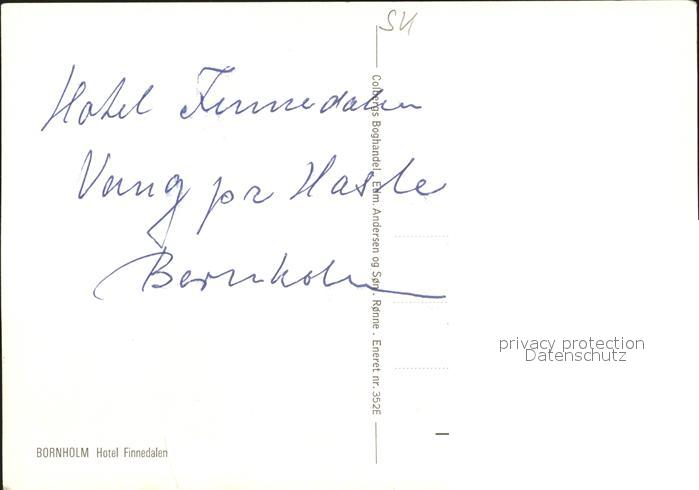 SU
Hotel Finnedalen
Vang pr Hasle
Bornholm
Colbergs Boghandel, Edm. Andersen og Søn, Rønne . Eneret nr. 352E
privacy protection
Datenschutz
BORNHOLM Hotel Finnedalen